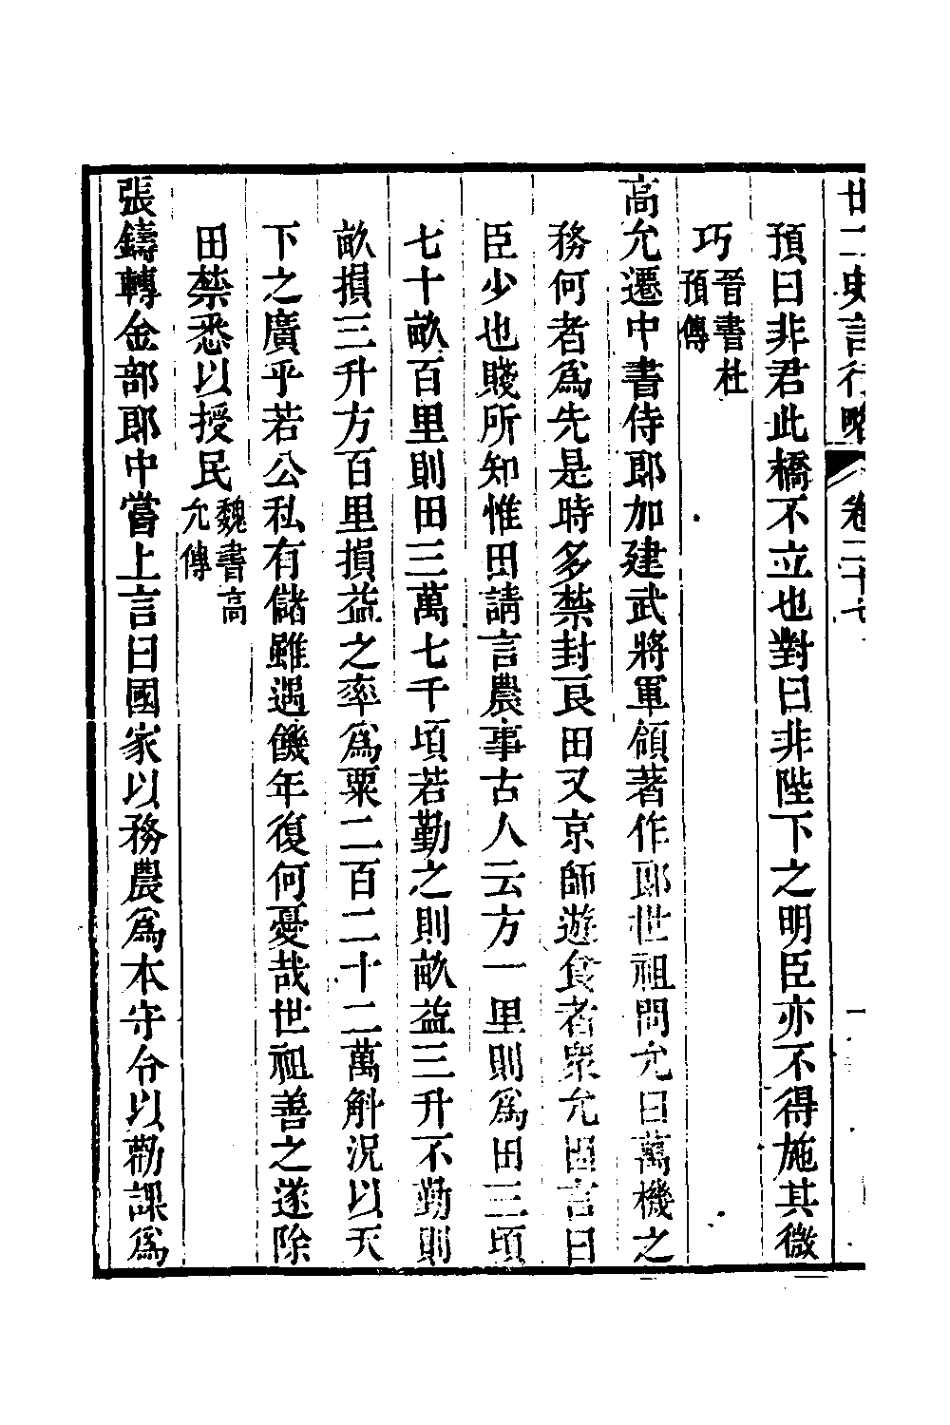 廿二史言行略 卷三十七
預曰非君此橋不立也對曰非陛下之明臣亦不得施其微
巧晉書杜預傳
高允遷中書侍郎加建武將軍領著作郎世祖問允曰萬機之
務何者爲先是時多禁封良田又京師遊食者衆允因言曰
臣少也賤所知惟田請言農事古人云方一里則爲田三頃
七十畝百里則田三萬七千頃若勤之則畝益三升不勤則
畝損三升方百里損益之率爲粟二百二十二萬斛況以天
下之廣乎若公私有儲雖遇饑年復何憂哉世祖善之遂除
田禁悉以授民魏書高允傳
張鑄轉金部郎中嘗上言曰國家以務農爲本守令以勸課爲